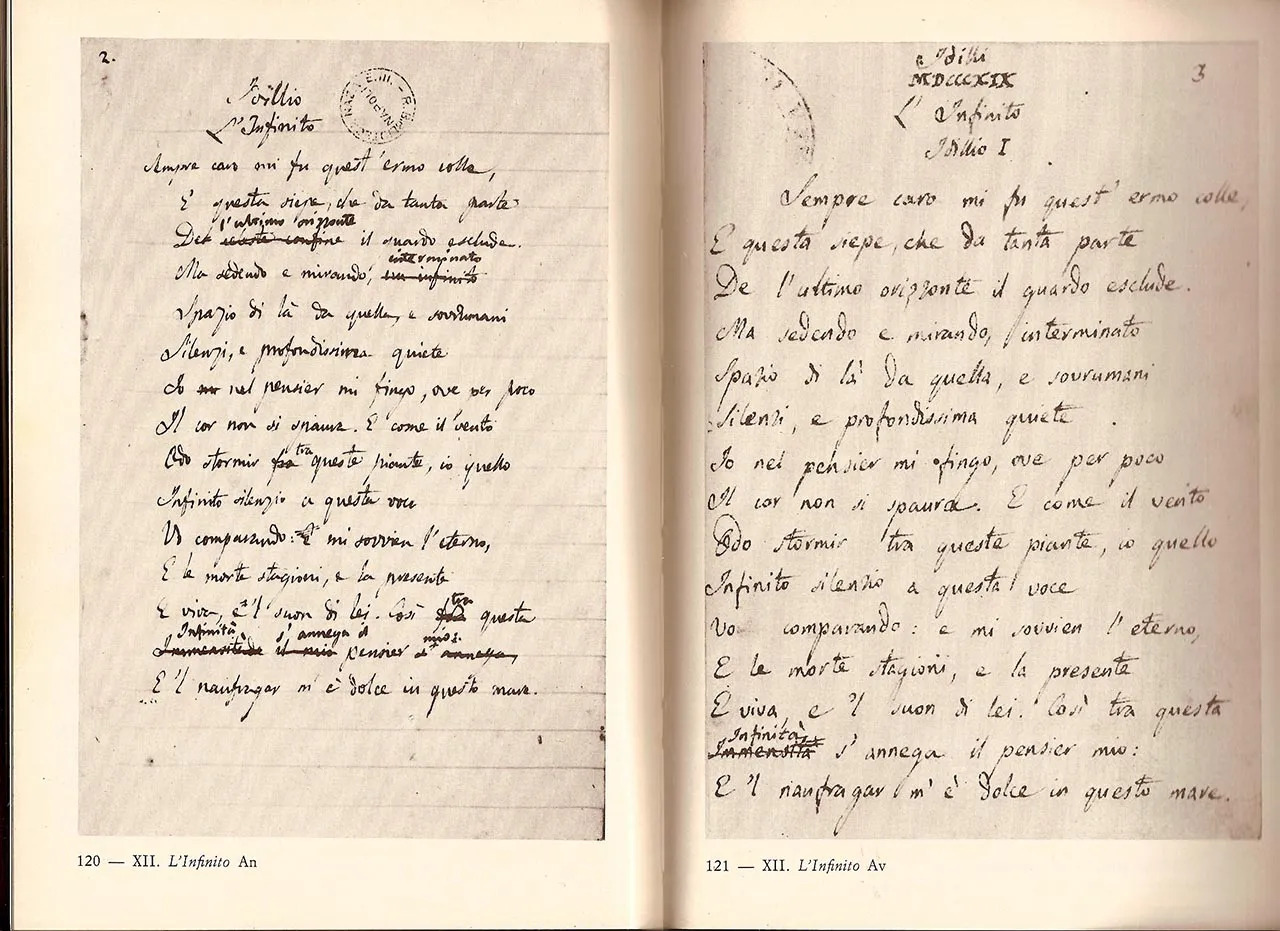 2.
Idillio
L'Infinito
Sempre caro mi fu quest'ermo colle,
E questa siepe, che da tanta parte
l'ultimo orizzonte
Del celeste confine il guardo esclude.
interminato
Ma sedendo e mirando, un infinito
Spazio di là da quella, e sovrumani
Silenzi, e profondissima quiete
Io nel pensier mi fingo, ove per poco
Il cor non si spaura. E come il vento
tra
Odo stormir fra queste piante, io quello
Infinito silenzio a questa voce
Vo comparando: E mi sovvien l'eterno,
E le morte stagioni, e la presente
tra
E viva, e 'l suon di lei. Così fra questa
Infinità s'annega il mio:
Immensitade il mio pensier s'annega,
E 'l naufragar m'è dolce in questo mare.
120 — XII. L'Infinito An
Idilli
MDCCCXIX
3
L'Infinito
Idillio I
Sempre caro mi fu quest'ermo colle,
E questa siepe, che da tanta parte
De l'ultimo orizzonte il guardo esclude.
Ma sedendo e mirando, interminato
Spazio di là da quella, e sovrumani
Silenzi, e profondissima quiete
Io nel pensier mi fingo, ove per poco
Il cor non si spaura. E come il vento
Odo stormir tra queste piante, io quello
Infinito silenzio a questa voce
Vo comparando: e mi sovvien l'eterno,
E le morte stagioni, e la presente
E viva, e 'l suon di lei. Così tra questa
Infinità
Immensità s'annega il pensier mio:
E 'l naufragar m'è dolce in questo mare.
121 — XII. L'Infinito Av